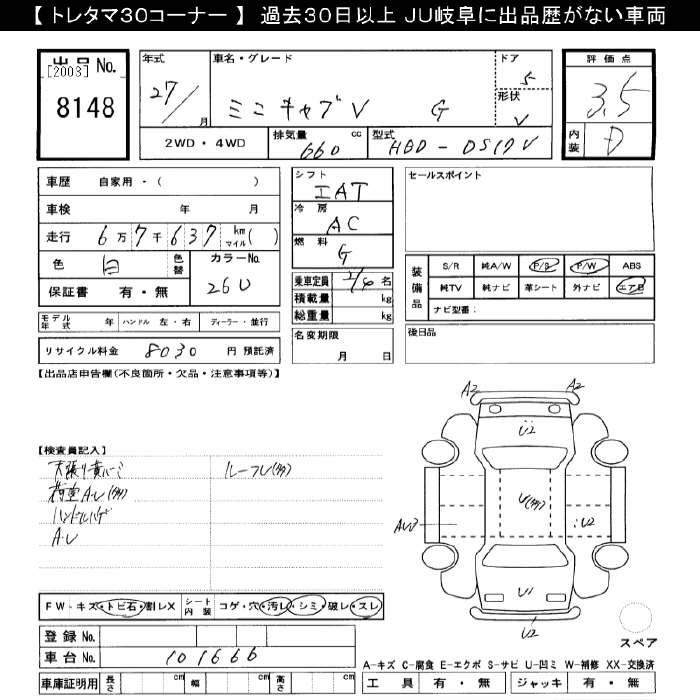 【トレタマ30コーナー】 過去30日以上 JU岐阜に出品歴がない車両
出品 No.
[2003]
8148
年式
27/
月
車名・グレード
ミニキャブV G
ドア
5
形状
V
2WD・4WD
排気量 cc
660
型式
HBD-DS17V
評価点
3.5
内装
D
車歴 自家用・( )
車検 年 月
走行 6万7千637 km マイル( )
色 白 色替 カラーNo.
26U
保証書 有・無
モデル年式 年 ハンドル 左・右 ディーラー・並行
リサイクル料金 8030 円 預託済
シフト
IAT
冷房
AC
燃料
G
乗車定員 2/4 名
積載量 kg
総重量 kg
名変期限
月 日
セールスポイント
装備品
S/R 純A/W P/S P/W ABS
純TV 純ナビ 革シート 外ナビ エアB
ナビ型番:
後日品
【出品店申告欄(不良箇所・欠品・注意事項等)】
【検査員記入】
ルーフU(多)
荷室A.U(多)
A.U
A2 A2
U2
U(多)
AU3
U2
U1
U2
スペア
FW-キズ・トビ石・割レX シート内装 コゲ・穴・汚レ・シミ・破レ・スレ
登録No.
車台No. 101666
車庫証明用 長さ cm 幅 cm 高さ cm
A-キズ C-腐食 E-エクボ S-サビ U-凹ミ W-補修 XX-交換済
工具 有・無 ジャッキ 有・無